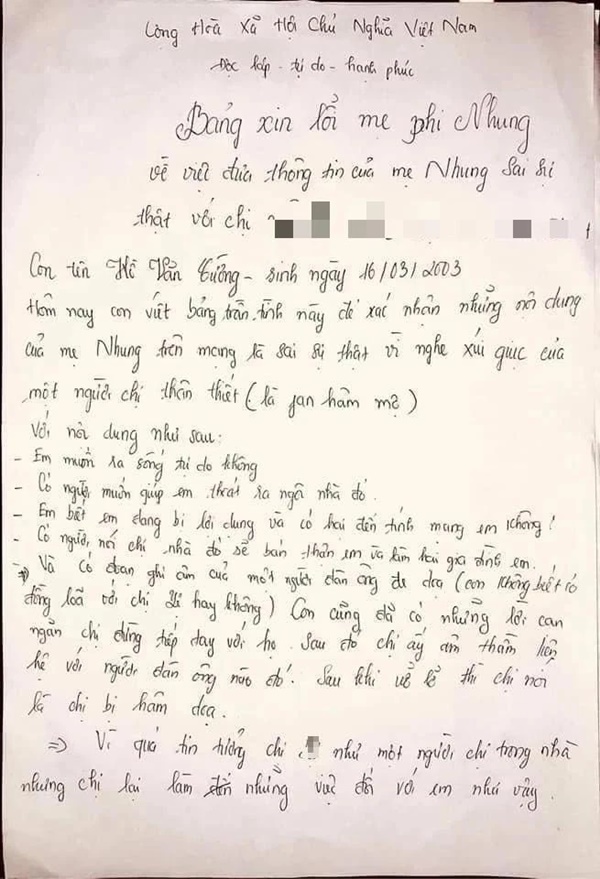 Cộng Hoà Xã Hội Chủ Nghĩa Việt Nam
Độc lập - tự do - hạnh phúc
Bảng xin lỗi mẹ phi Nhung
về việc đưa thông tin của mẹ Nhung sai sự
thật với chị
Con tên Hồ Văn Cường - sinh ngày 16/03/2003
Hôm nay con viết bảng trần tình này để xác nhận những nội dung
của mẹ Nhung trên mạng là sai sự thật vì nghe xúi giục của
một người chị thân thiết (là fan hâm mộ)
Với nội dung như sau:
- Em muốn ra sống tự do không
- Có người muốn giúp em thoát ra ngôi nhà đó.
- Em biết em đang bị lợi dụng và có hại đến tính mạng em không!
- Có người nói chí nhà đó sẽ bán thân em và làm hại gia đình em.
=> Và có đoạn ghi âm của một người đàn ông đe dọa (con không biết có
đồng loã với chị hay không) Con cũng đã có những lời can
ngăn chị đừng tiếp tay với họ. Sau đó chị ấy âm thầm liên
hệ với người đàn ông nào đó. Sau khi về lễ thì chị nói
là chị bị hâm dọa.
=> Vì quá tin tưởng chị như một người chị trong nhà
nhưng chị lại làm những việc đối với em như vậy.